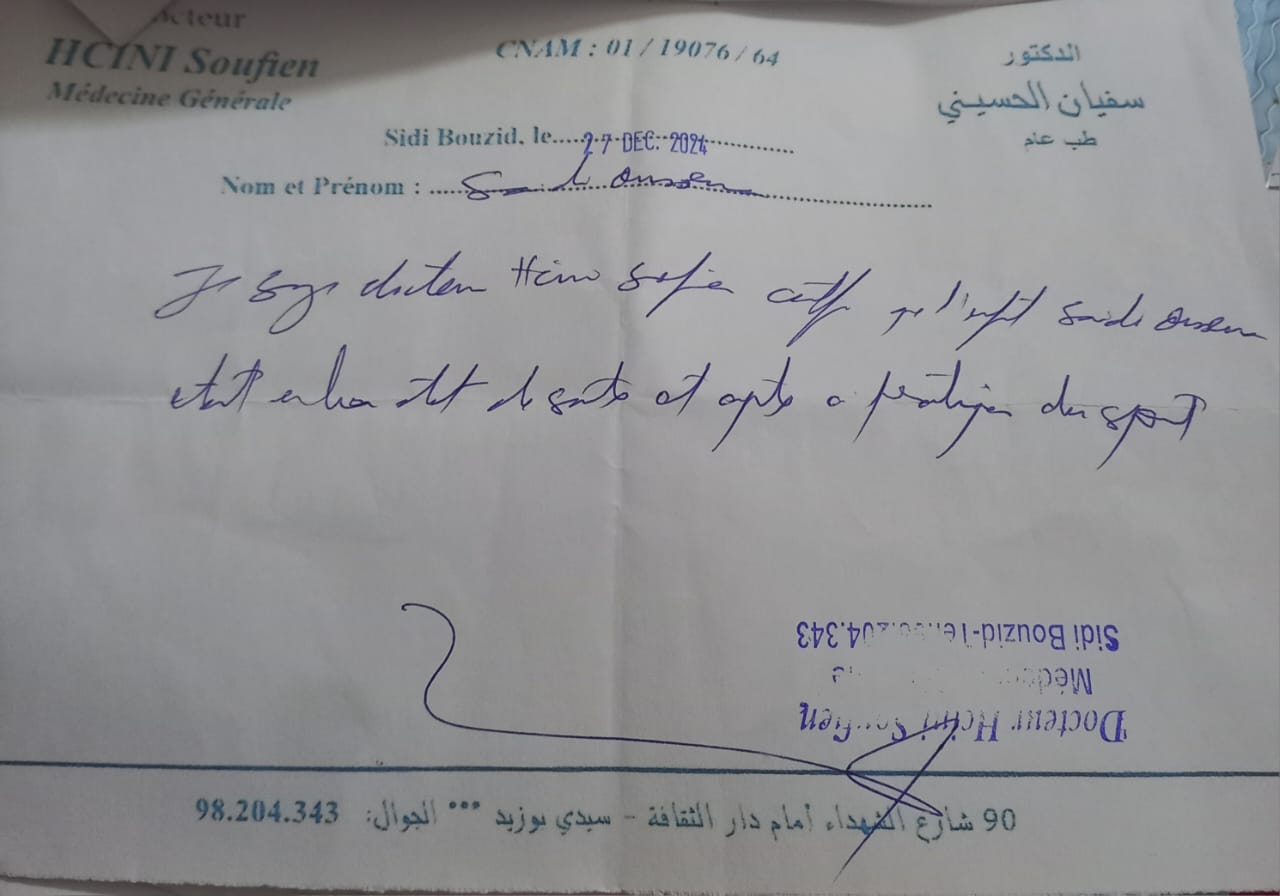 HCINI Soufien
Médecine Générale
CNAM : 01 / 19076 / 64
الدكتور
سفيان الحسيني
طب عام
Sidi Bouzid, le 27 DEC. 2024
Nom et Prénom :
Je docteur Hcini certifie que l'enfant
etat en bon etat de santé et apte a pratiquer du sport
Docteur Hcini Soufien
Sidi Bouzid 204.343
90 شارع الشهداء أمام دار الثقافة - سيدي بوزيد *** الجوال: 98.204.343